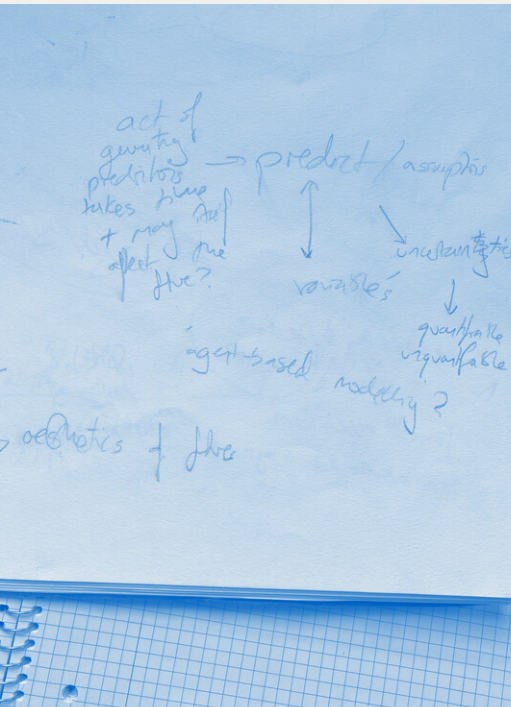 act of
predictions
takes time
+ may itself
affect the
→ predict / assumptions
variables
uncertainties
quantifiable
unquantifiable
agent-based modelling?
aesthetics of